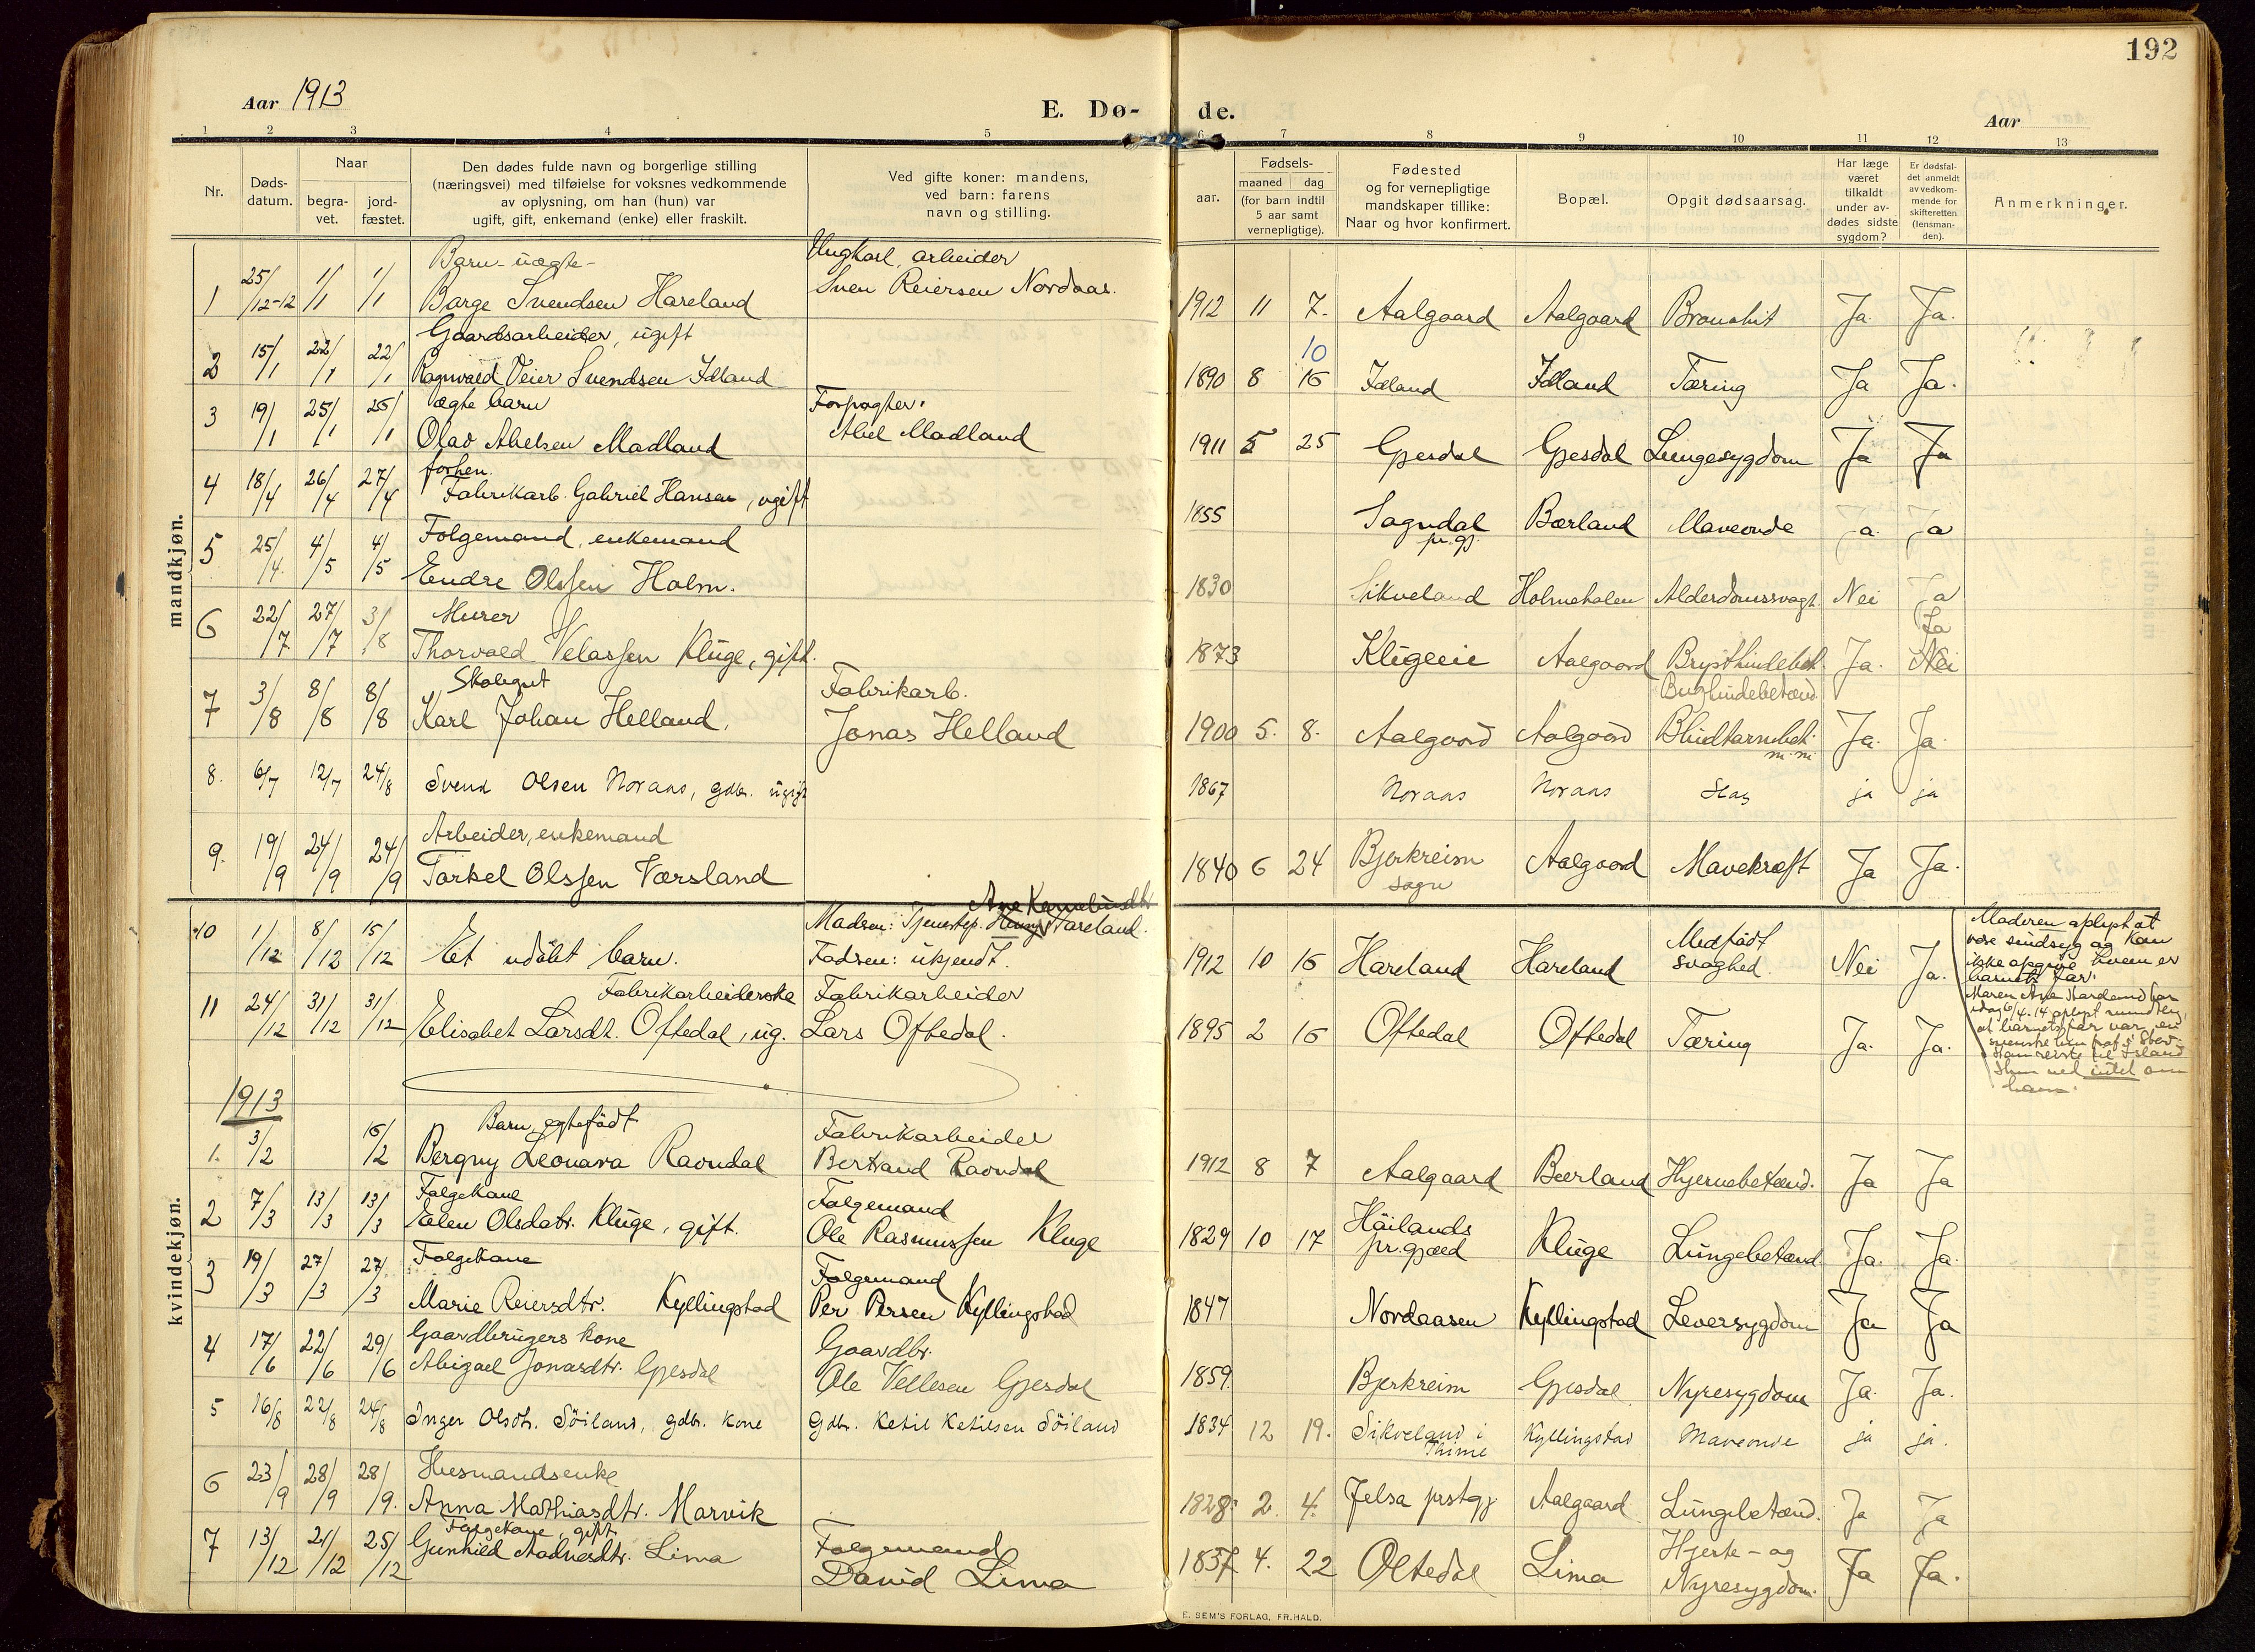 192
Aar 1913
E. Dø-
de.
Aar
1 2 3 4 5 6 7 8 9 10 11 12 13
Nr.
Døds-
datum.
Naar
begra-
vet.
jord-
fæstet.
Den dødes fulde navn og borgerlige stilling
(næringsvei) med tilføielse for voksnes vedkommende
av oplysning, om han (hun) var
ugift, gift, enkemand (enke) eller fraskilt.
Ved gifte koner: mandens,
ved barn: farens
navn og stilling.
Fødsels-
aar.
maaned
dag
(for barn indtil
5 aar samt
vernepligtige).
Fødested
og for vernepligtige
mandskaper tillike:
Naar og hvor konfirmert.
Bopæl.
Opgit dødsaarsag.
Har læge
været
tilkaldt
under av-
dødes sidste
sygdom?
Er dødsfal-
det anmeldt
av vedkom-
mende for
skifteretten
(lensman-
den).
Anmerkninger.
mandkjøn.
Barn - uægte - Ungkarl, arbeider
1 25/12-12 1/1 1/1 Børge Svendsen Hareland Sven Reiersen Nordaas. 1912 11 7. Aalgaard Aalgaard Bronchit Ja. Ja.
Gaardsarbeider, ugift 10
2 15/1 22/1 22/1 Ragnvald Veier Svendsen Idland 1890 8 16 Idland Idland Tæring Ja Ja.
ægte barn Forpagter.
3 19/1 25/1 25/1 Olav Abelsen Madland Abel Madland 1911 5 25 Gjesdal Gjesdal Lungesygdom Ja Ja
forhen.
4 18/4 26/4 27/4 Fabrikarb. Gabriel Hansen, ugift 1855 Sogndal Bærland Maveonde Ja Ja
pr.gj.
Folgemand, enkemand
5 25/4. 4/5 4/5 Endre Olssen Holm. 1830 Sikveland Holmehalen Alderdomssvagh. Nei Ja
Murer Ja
6 22/7 27/7 3/8 Thorvald Velassen Kluge, gift. 1873 Klugeeie Aalgaard Brysthindebet. Ja. Nei
Skolegut Fabrikarb. Brysthindebetænd.
7 3/8 8/8 8/8 Karl Johan Helland. Jonas Helland 1900 5. 8. Aalgaard Aalgaard Blindtarmbet. Ja. Ja.
m.m.
8. 6/7 12/7 24/8 Svend Olsen Noraas, gdbr. ugift 1867 Noraas Noraas Slag ja ja
Arbeider, enkemand
9. 19/9 24/9 24/9 Torkel OlssenVærsland 1840 6 24 Bjerkreim Aalgaard Mavekræft Ja Ja.
sogn
Moderen: Tjenestep. Hareland.
10 1/12 8/12 15/12 Et udøbt barn. Faderen: ukjendt. 1912 10 16 Hareland Hareland Medfødt Nei Ja.
svaghed.
Moderen oplyst at
være sindsyg og kan
ikke opgive hvem er
barnets far.
Fabrikarbeiderske Fabrikarbeider
11 24/12 31/12 31/12 Elisabet Larsdt. Oftedal, ug. Lars Oftedal. 1895 2 16 Oftedal Oftedal Tæring Ja. Ja.
idag 6/4-14 oplyst
at barnets far var en
Han reiste til Island
Hun ved intet om
ham.
kvindekjøn.
1913
Barn, egtefødt Fabrikarbeider
1. 3/2 16/2 Bergny Leonara Ravndal Bertrand Ravndal 1912 8 7 Aalgaard Bærland Hjernebetænd. Ja Ja
Folgekone Folgemand
2 7/3 13/3 13/3 Elen Olsdatr. Kluge, gift. Ole Rasmussen Kluge 1829 10 17 Høilands Kluge Lungebetænd Ja. Ja.
pr.gjæld
Folgekone Folgemand
3 19/3 27/3 27/3 Marie Reiersdtr. Kyllingstad Per Persen Kyllingstad 1847 Nordaasen Kyllingstad Leversygdom Ja Ja
Gaardbrugers kone Gaardbr.
4 17/6 22/6 29/6 Abigael Jonasdtr. Gjesdal Ole Vellesen Gjesdal 1859. Bjerkreim Gjesdal Nyresygdom Ja. Ja.
5 16/8 22/8 24/8 Inger Olsdtr. Söiland, gdbr. kone Gdbr. Ketil Ketilsen Söiland 1834 12 19. Sikveland i Kyllingstad Maveonde ja ja.
Thime
Husmandsenke
6 23/9 28/9 28/9. Anna Mathiasdtr. Marvik 1828. 2. 4. Jelsa prstgj Aalgaard Lungebetænd. Ja Ja
Folgekone, gift Folgemand
7 13/12 21/12 25/12 Gunhild Aadnesdtr. Lima David Lima 1837 4. 22 Oltedal Lima Hjerte- og Ja Ja.
Nyresygdom.
E. SEM'S FORLAG, FR.HALD.